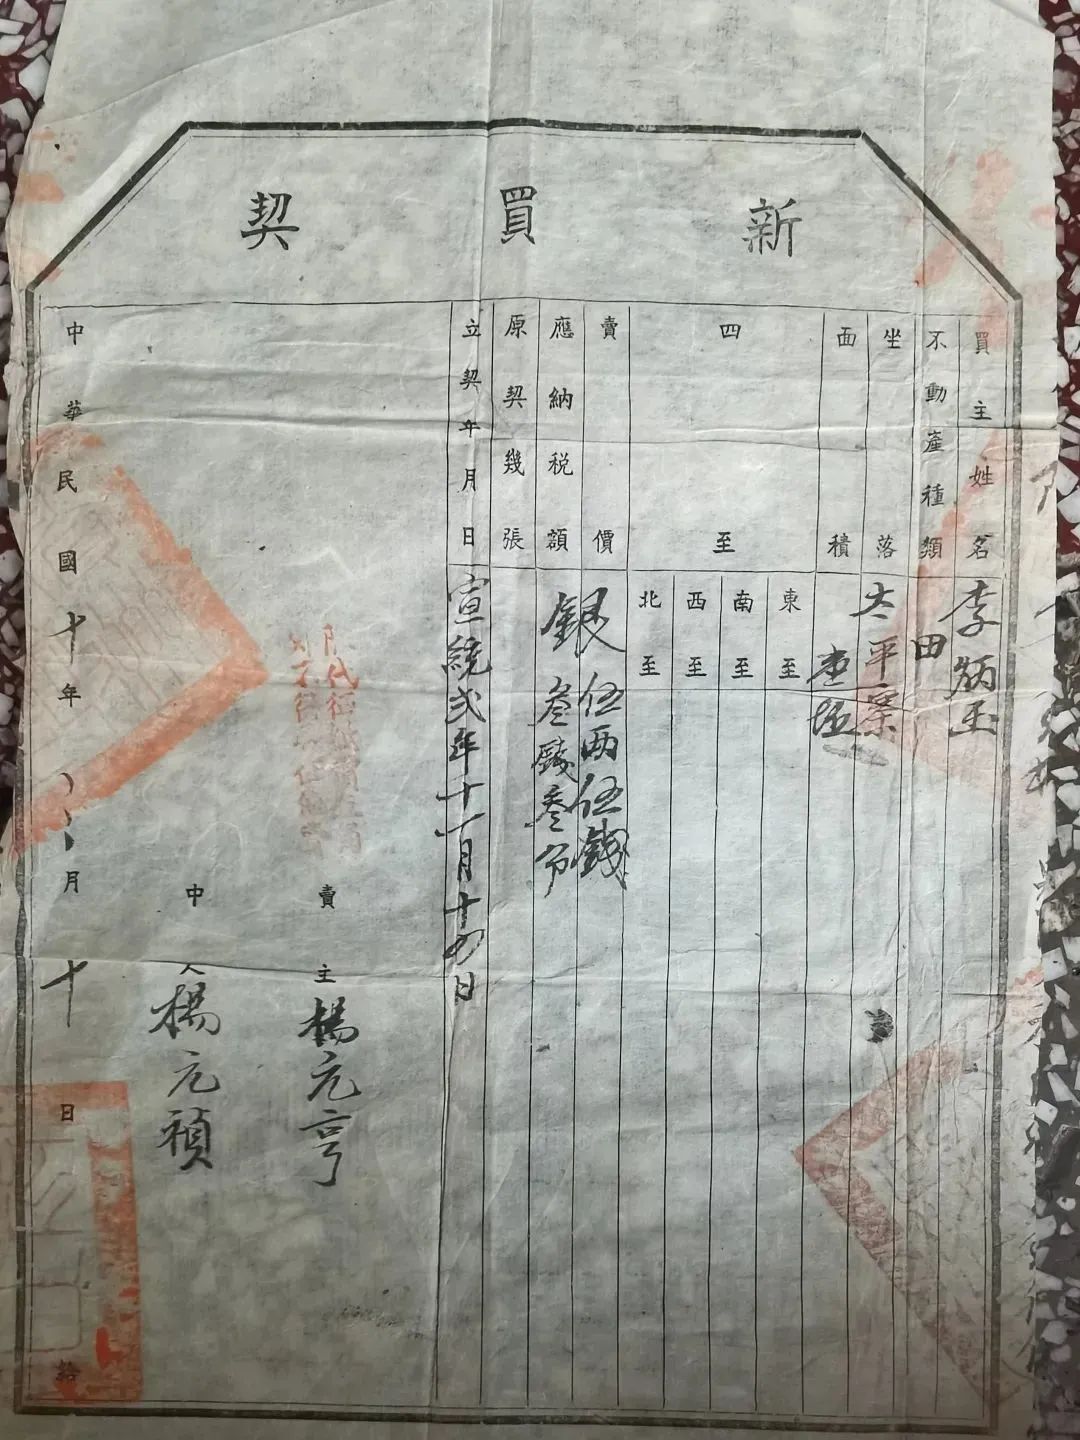 新買契
買主姓名 李炳玉
不動產種類 田
坐落 太平寨
面積 壹坵
四至
東至
南至
西至
北至
賣價 銀伍両伍錢
應納税額 叁錢叁分
原契幾張
立契年月日 宣統弍年十一月十四日
賣主 楊元亨
中人 楊元禎
中華民國十年 月十日 給